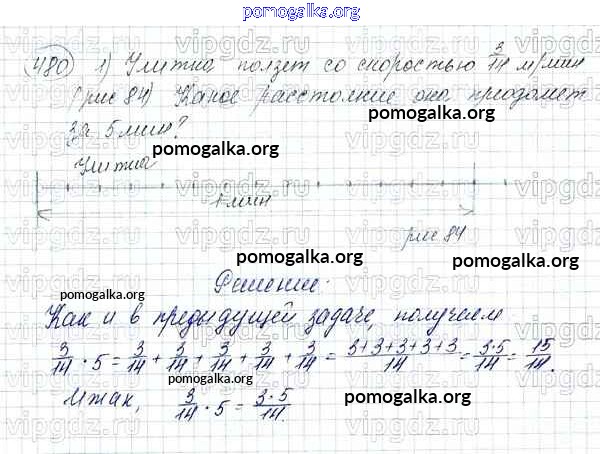 pomogalka.org
480 1) Улитка ползет со скоростью 3/14 м/мин
(рис 84) Какое расстояние она преодолеет
за 5 мин?
pomogalka.org
pomogalka.org
Улитка
1 мин
рис 84
pomogalka.org
Решение.
pomogalka.org
Как и в предыдущей задаче, получаем
3/14 · 5 = 3/14 + 3/14 + 3/14 + 3/14 + 3/14 = 3+3+3+3+3/14 = 3·5/14 = 15/14.
pomogalka.org
pomogalka.org
Итак, 3/14 · 5 = 3·5/14.
vipgdz.ru